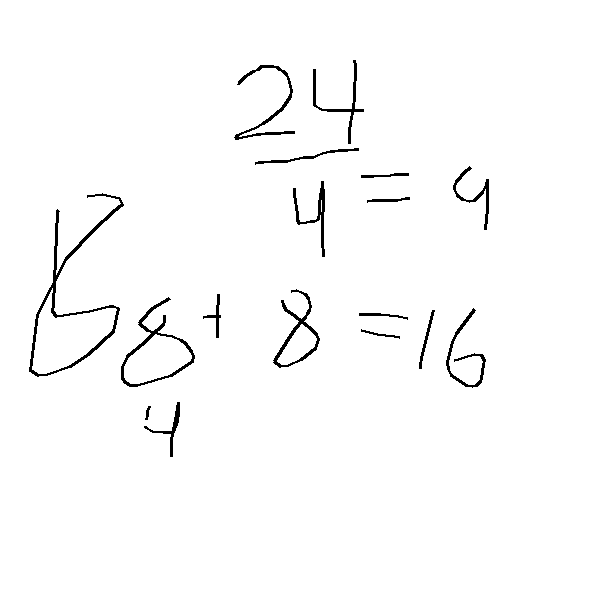 24
4 = 9
8 + 8 = 16
4